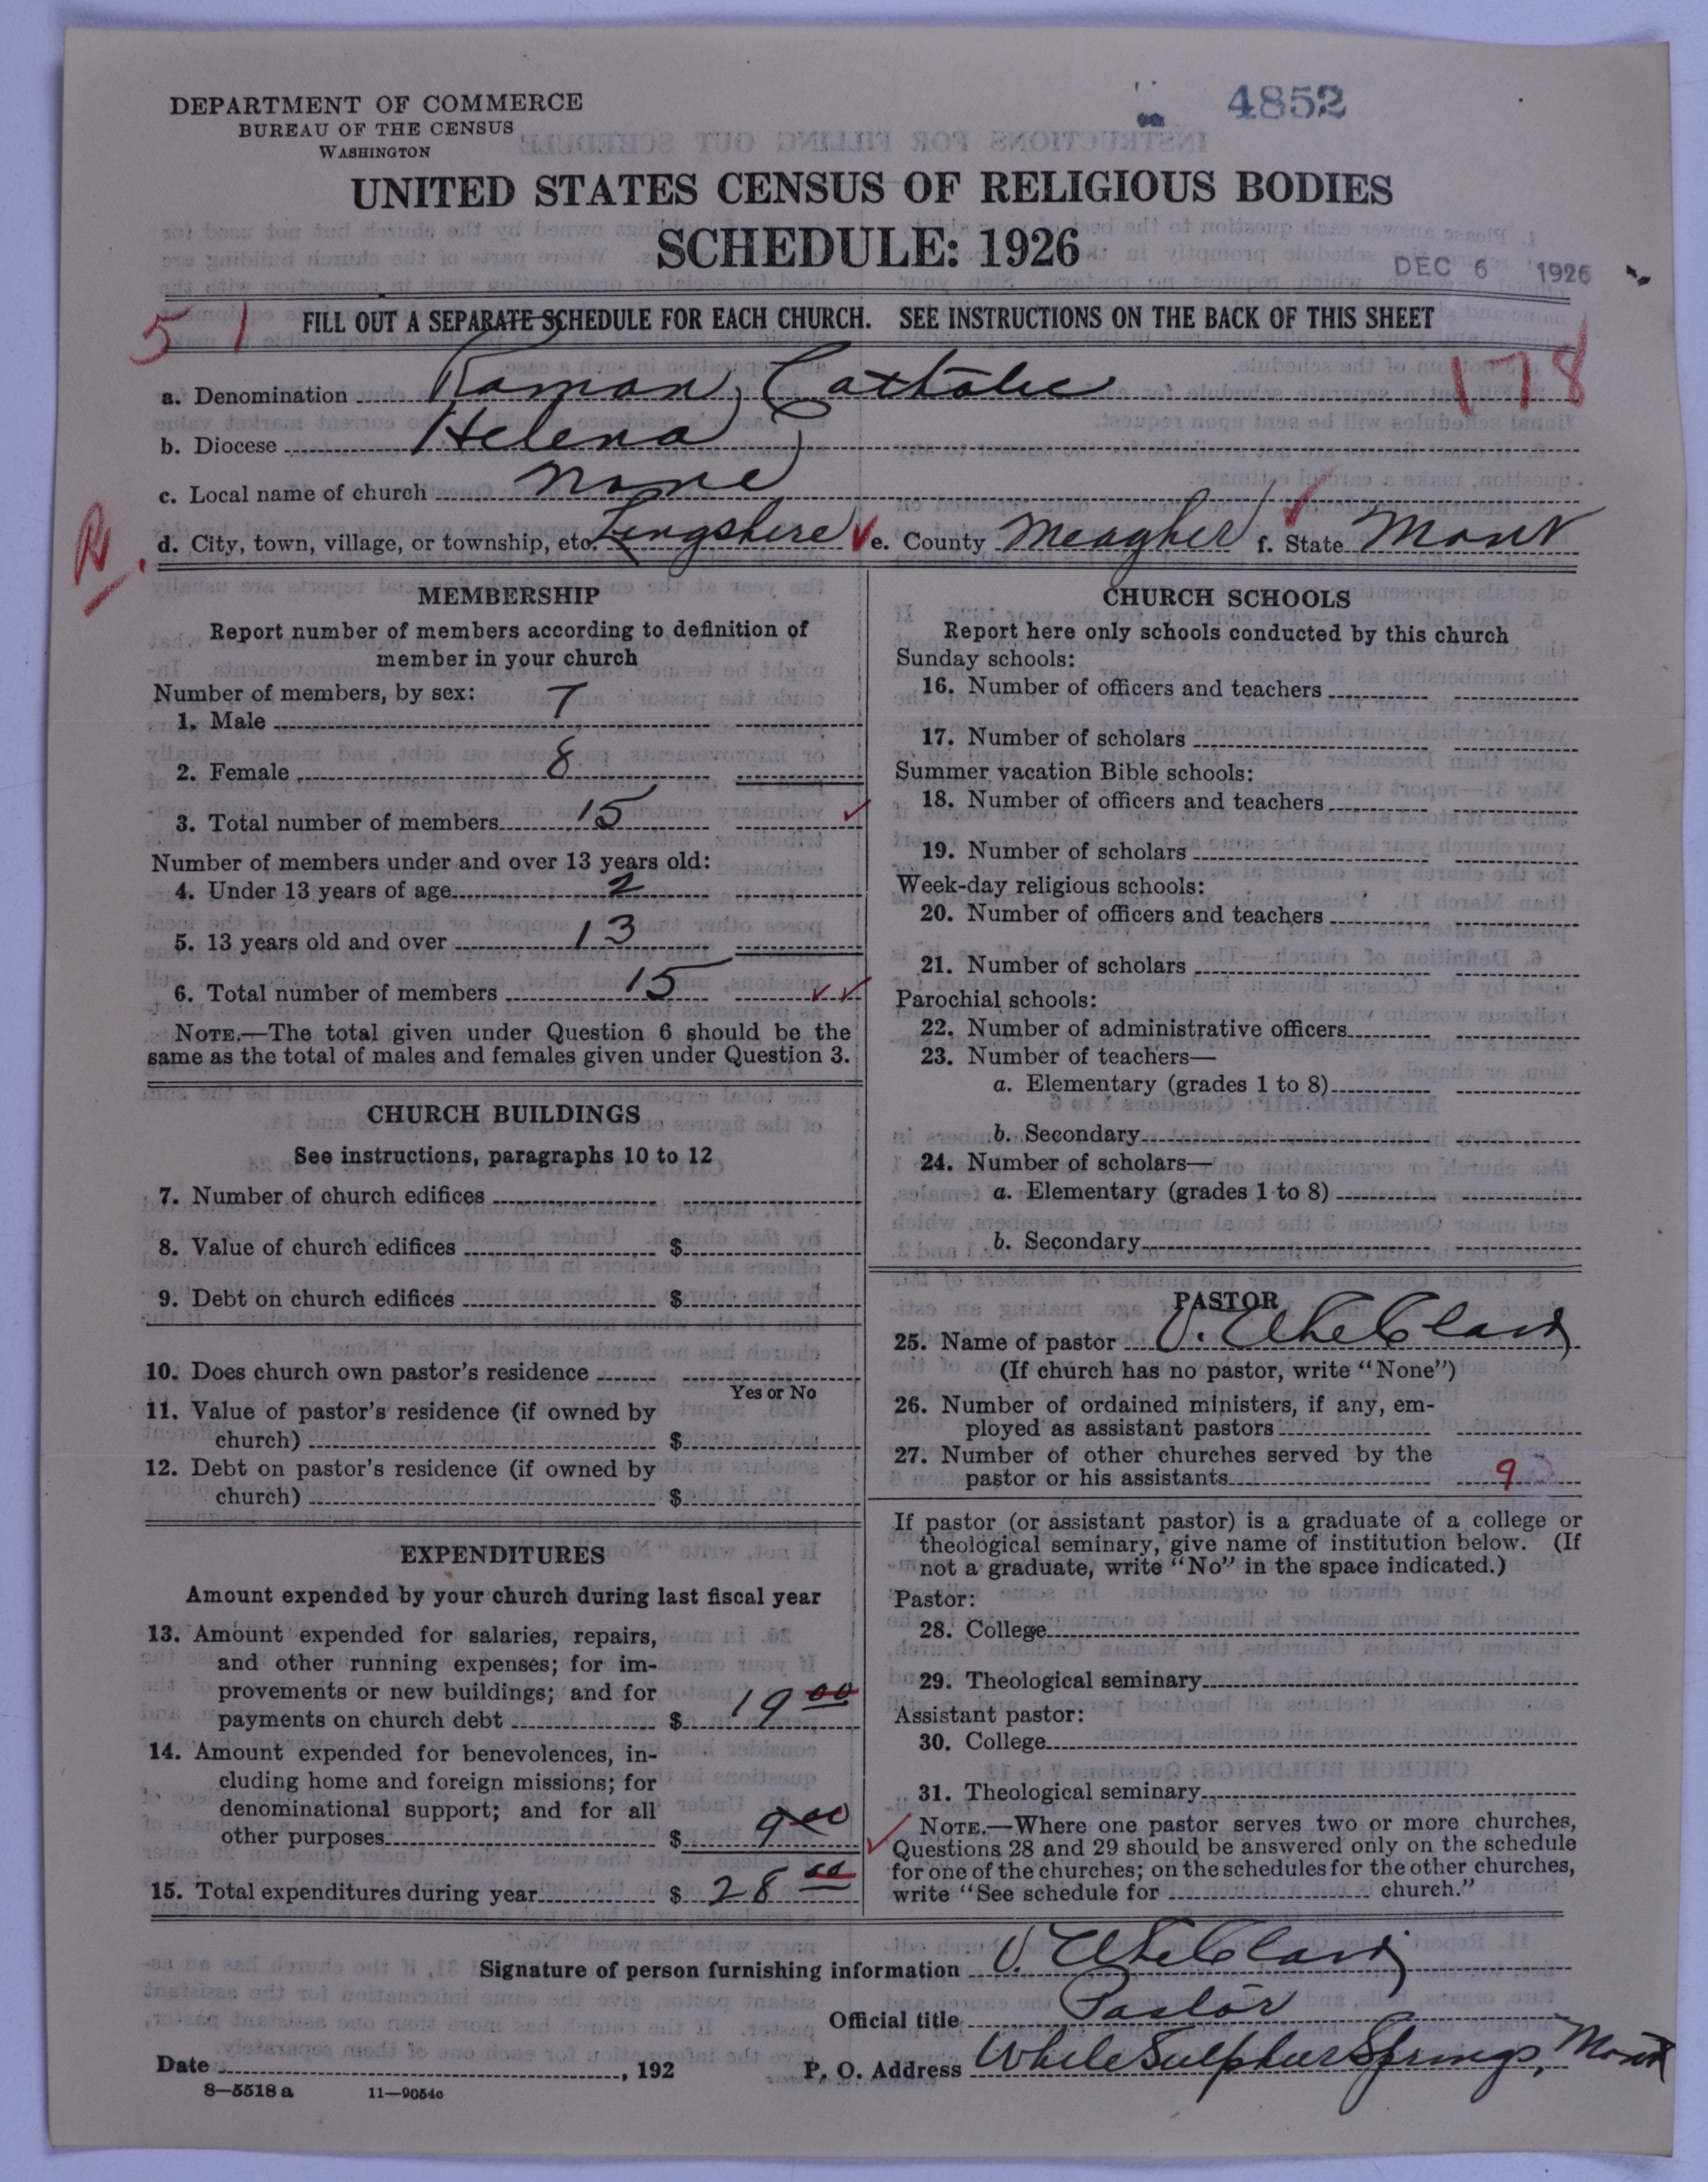 4852
DEPARTMENT OF COMMERCE
BUREAU OF THE CENSUS
WASHINGTON
UNITED STATES CENSUS OF RELIGIOUS BODIES
SCHEDULE: 1926
DEC 6 1926
51
FILL OUT A SEPARATE SCHEDULE FOR EACH CHURCH. SEE INSTRUCTIONS ON THE BACK OF THIS SHEET
178
a. Denomination Roman Catholic
b. Diocese Helena
c. Local name of church None
R.
d. City, town, village, or township, etc. Lingshire e. County Meagher f. State Mont
MEMBERSHIP
Report number of members according to definition of
member in your church
Number of members, by sex:
1. Male 7
2. Female 8
3. Total number of members 15
Number of members under and over 13 years old:
4. Under 13 years of age 2
5. 13 years old and over 13
6. Total number of members 15
NOTE.—The total given under Question 6 should be the
same as the total of males and females given under Question 3.
CHURCH BUILDINGS
See instructions, paragraphs 10 to 12
7. Number of church edifices
8. Value of church edifices $
9. Debt on church edifices $
10. Does church own pastor's residence
Yes or No
11. Value of pastor's residence (if owned by
church) $
12. Debt on pastor's residence (if owned by
church) $
EXPENDITURES
Amount expended by your church during last fiscal year
13. Amount expended for salaries, repairs,
and other running expenses; for im-
provements or new buildings; and for
payments on church debt $ 19 00
14. Amount expended for benevolences, in-
cluding home and foreign missions; for
denominational support; and for all
other purposes $ 9 00
15. Total expenditures during year $ 28 00
CHURCH SCHOOLS
Report here only schools conducted by this church
Sunday schools:
16. Number of officers and teachers
17. Number of scholars
Summer vacation Bible schools:
18. Number of officers and teachers
19. Number of scholars
Week-day religious schools:
20. Number of officers and teachers
21. Number of scholars
Parochial schools:
22. Number of administrative officers
23. Number of teachers—
a. Elementary (grades 1 to 8)
b. Secondary
24. Number of scholars—
a. Elementary (grades 1 to 8)
b. Secondary
PASTOR
25. Name of pastor V.
(If church has no pastor, write "None")
26. Number of ordained ministers, if any, em-
ployed as assistant pastors
27. Number of other churches served by the
pastor or his assistants 9
If pastor (or assistant pastor) is a graduate of a college or
theological seminary, give name of institution below. (If
not a graduate, write "No" in the space indicated.)
Pastor:
28. College
29. Theological seminary
Assistant pastor:
30. College
31. Theological seminary
NOTE.—Where one pastor serves two or more churches,
Questions 28 and 29 should be answered only on the schedule
for one of the churches; on the schedules for the other churches,
write "See schedule for church."
Signature of person furnishing information V.
Official title Pastor
Date , 192 P. O. Address White Sulphur Springs, Mont
8—5518 a 11—9054c